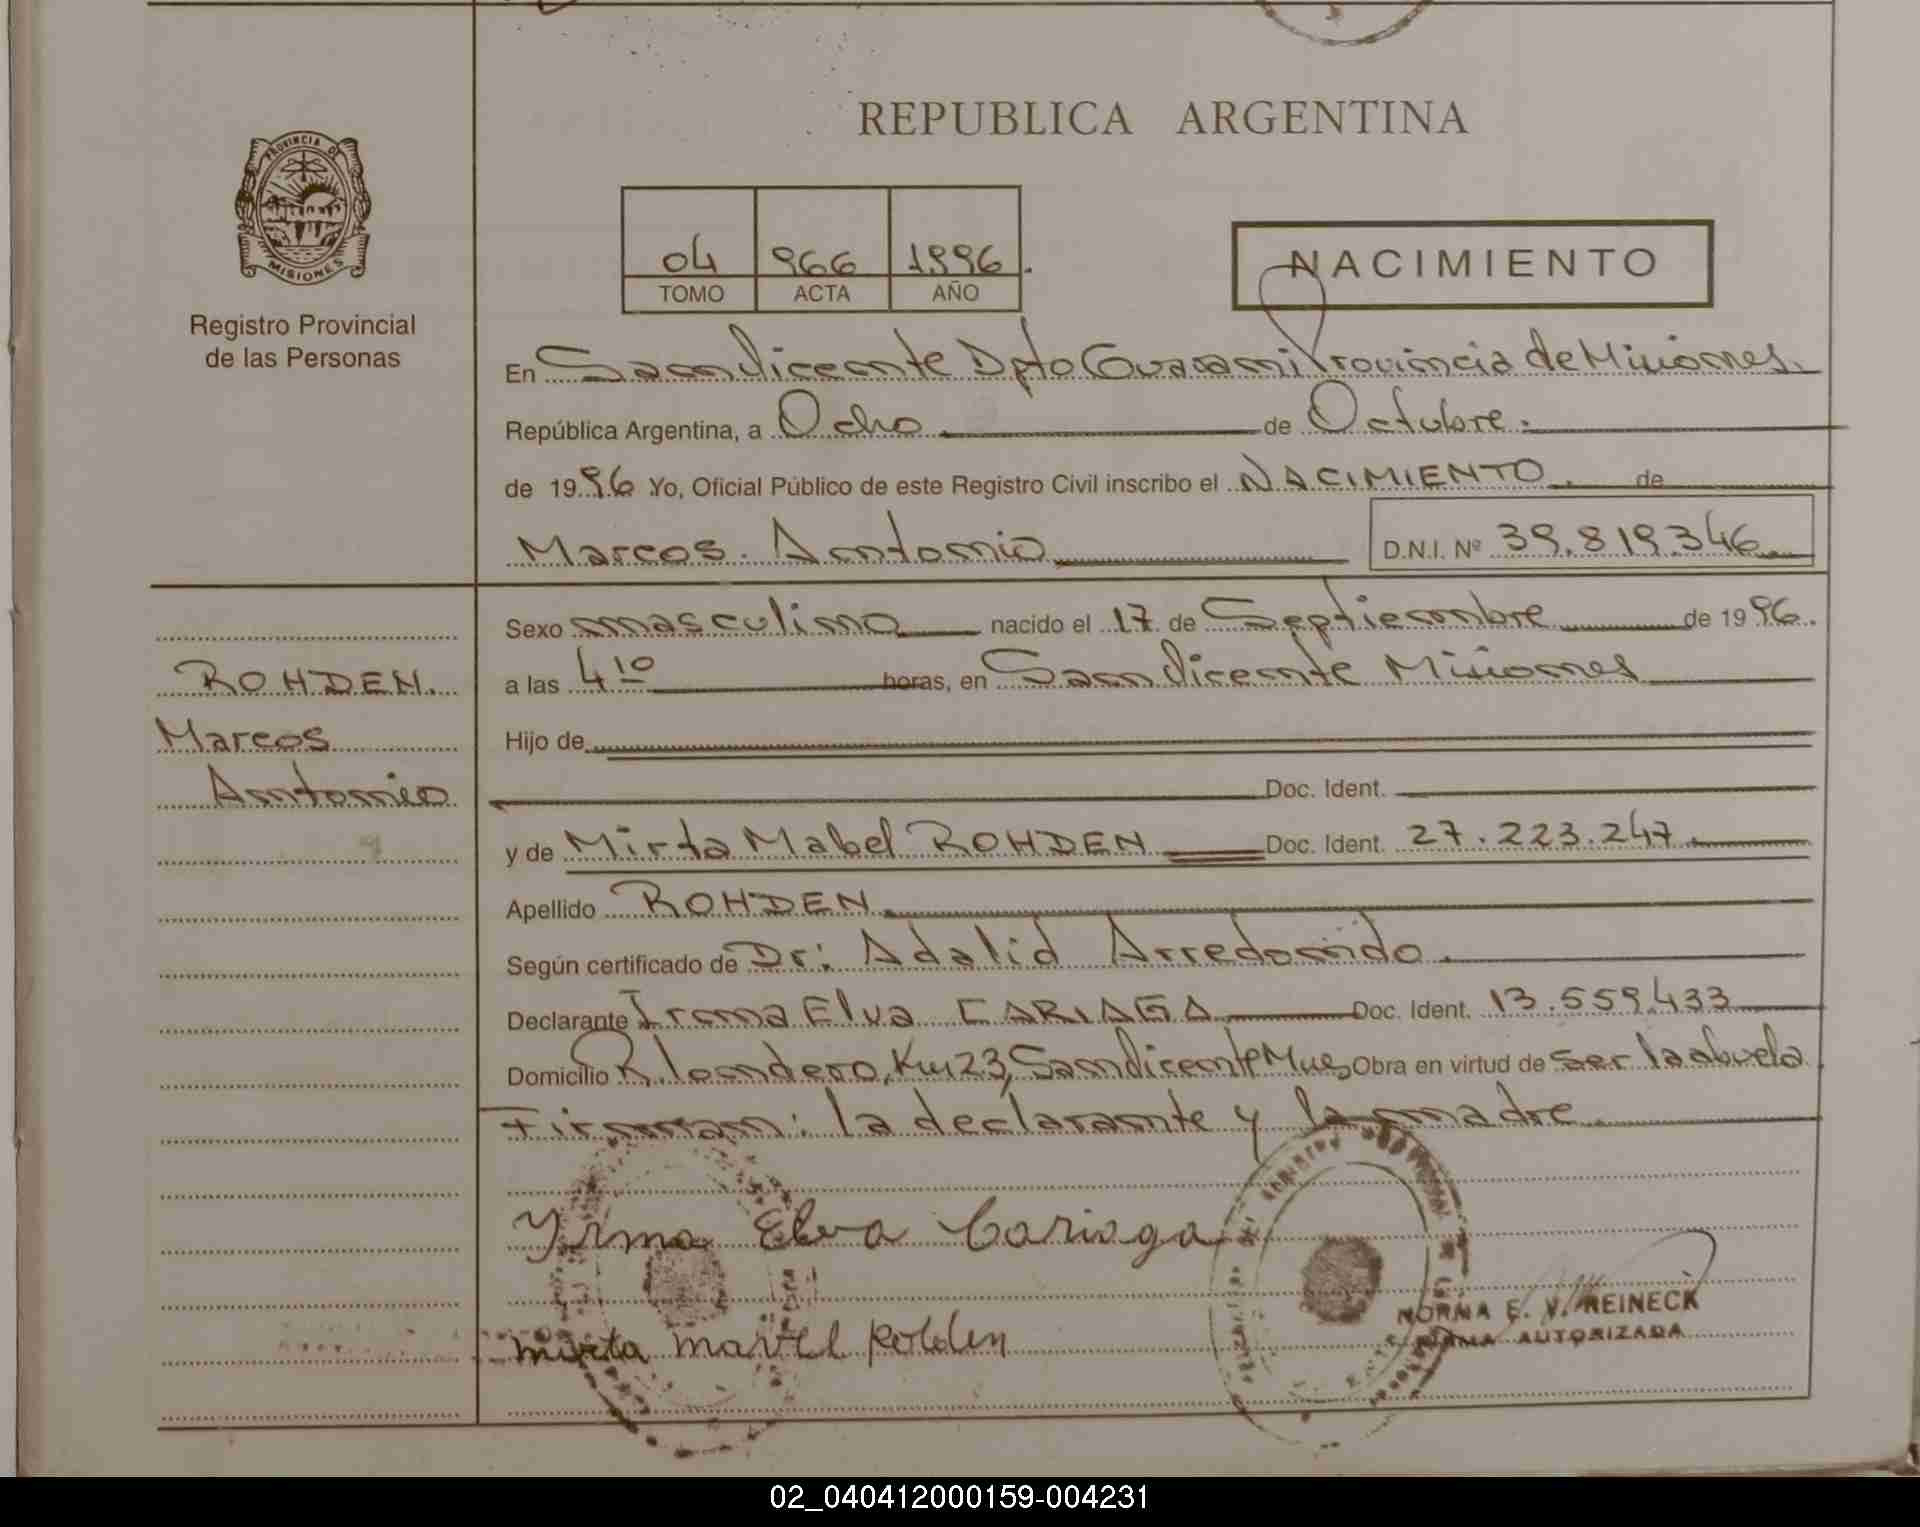 REPUBLICA ARGENTINA
PROVINCIA DE
MISIONES
Registro Provincial
de las Personas
04 966 1996.
TOMO ACTA AÑO
NACIMIENTO
En San Vicente Dpto Guarani Provincia de Misiones.
República Argentina, a Ocho de Octubre.
de 1996 Yo, Oficial Público de este Registro Civil inscribo el NACIMIENTO. de
Marcos Antonio D.N.I. Nº 39.819.346
ROHDEN.
Marcos
Antonio
Sexo masculino nacido el 17 de Septiembre de 1996.
a las 4 10 horas, en San Vicente Misiones
Hijo de
Doc. Ident.
y de Mirta Mabel ROHDEN Doc. Ident. 27.223.247.
Apellido ROHDEN
Según certificado de Dr: Adalid Arredondo.
Declarante Irma Elva CARIAGA Doc. Ident. 13.559.433
Domicilio Km 23, San Vicente Mnes Obra en virtud de ser la abuela
Firman: la declarante y la madre
Yrma Elva Cariaga
NORMA E. V. REINECK
FIRMA AUTORIZADA
mirta mavel Rohden
02_040412000159-004231